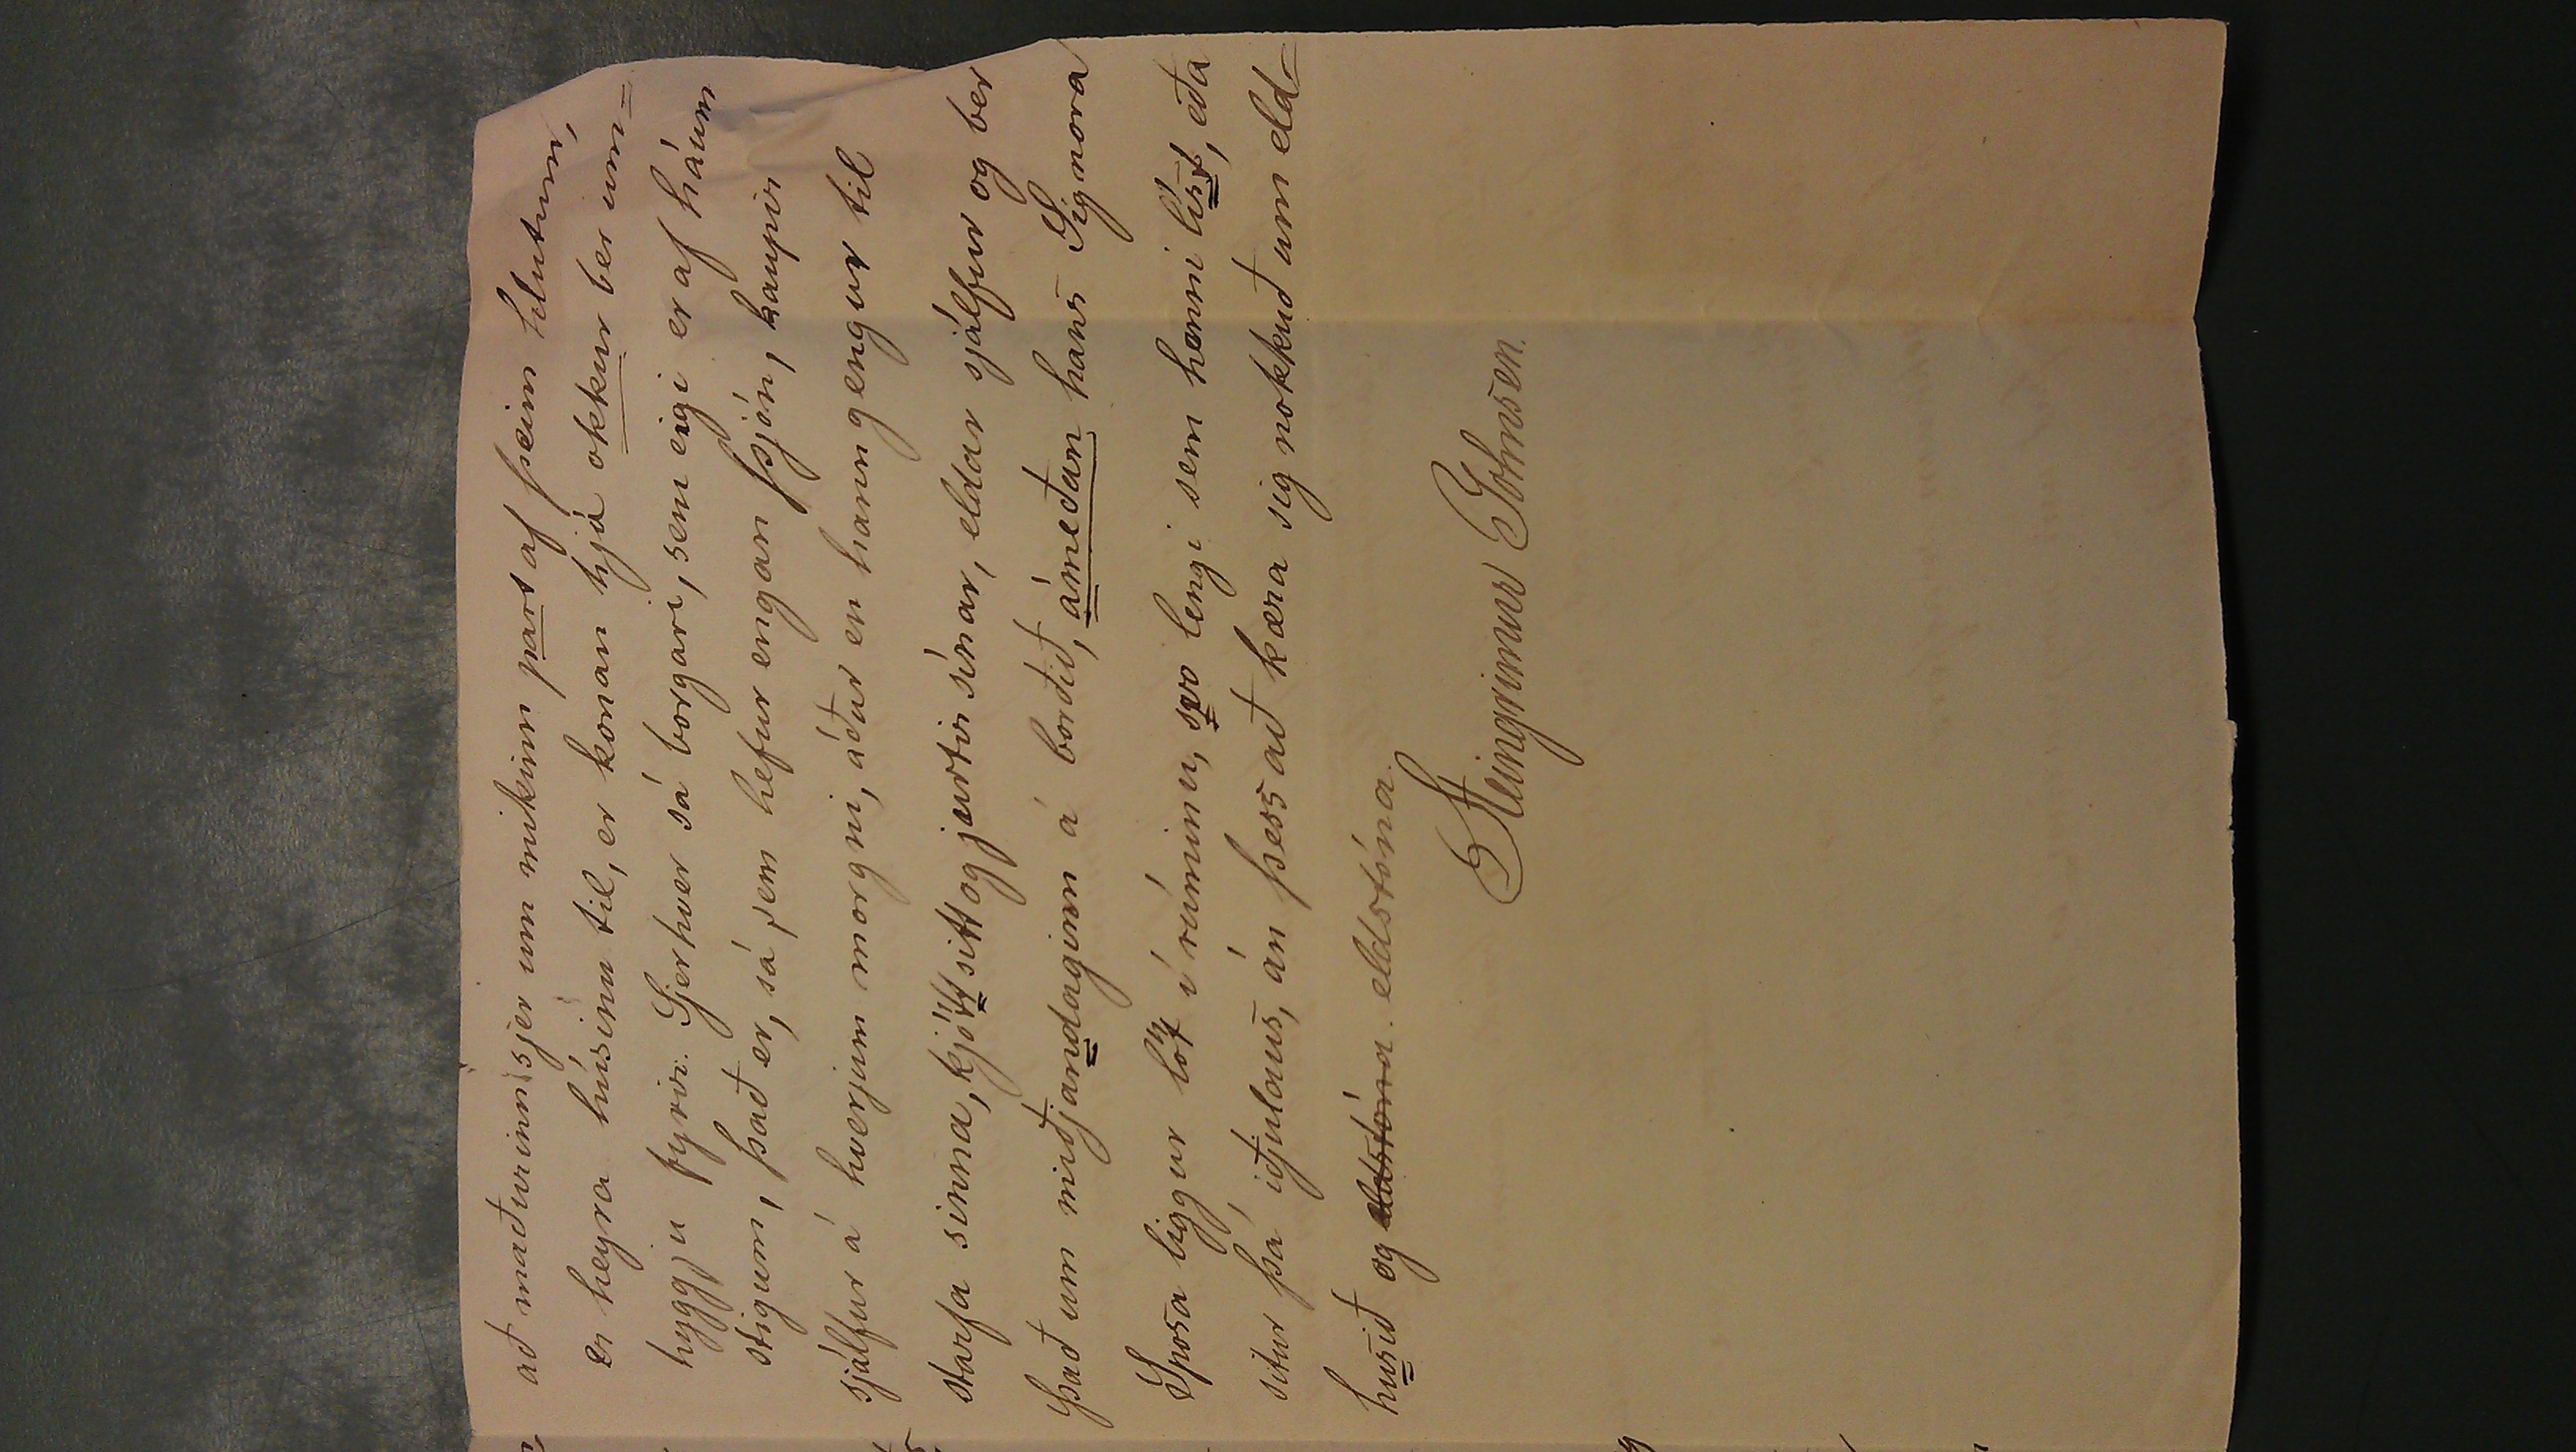 að maðurinn sjer um mikinn part af þeim hlutum,
er heyra húsinu til, er konan hjá okkur ber um=
hyggju fyrir. Sjer hver sá borgari, sem eigi er af háum
stigum, það er, sá sem hefur engan þjón, kaupir
sjálfur á hverjum morgni, áður en hann gengur til
starfa sinna, kjött sitt og jurtir sínar, eldar sjálfur og ber
það um miðjandaginn á borðið, ámeðan hans Signora
Sposa liggur löt í rúminu, svo lengi sem henni líst, eða
situr þá iðjulaus, án þess að kæra sig nokkuð um eld=
husið og eldstóna. eldstóna.
Steingrímur Johnsen.